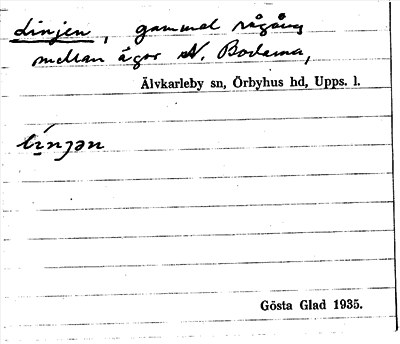 Linjen, gammal rågång
mellan ägor N. Bodarna,
Älvkarleby sn, Örbyhus hd, Upps. l.
línjən
Gösta Glad 1935.